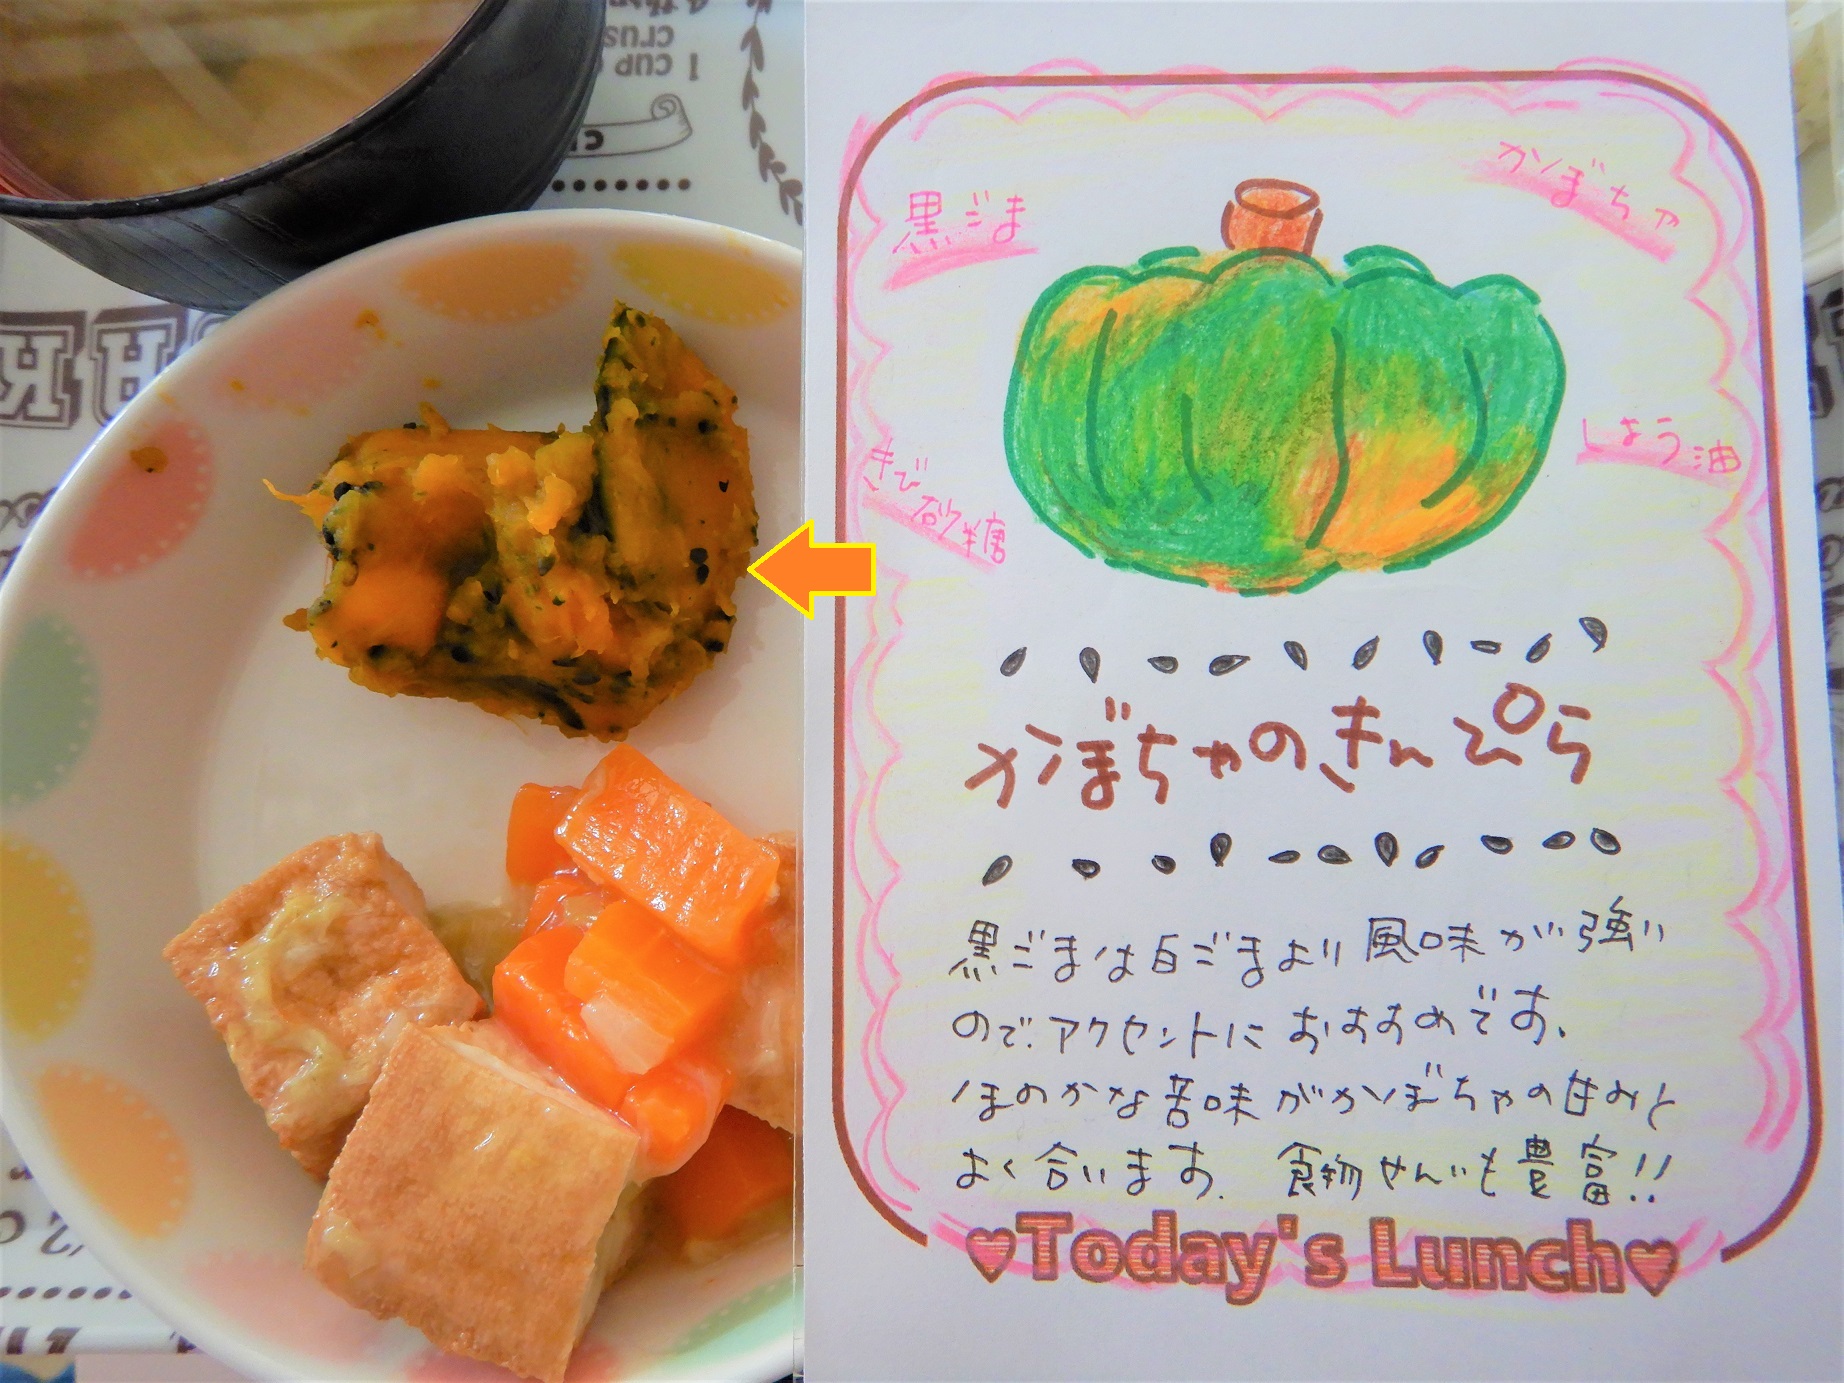 1 CUP
crus
黒ごま
かぼちゃ
きび
砂糖
しょう油
かぼちゃのきんぴら
黒ごまは白ごまより風味が強い
ので、アクセントにおすすめです。
ほのかな苦味がかぼちゃの甘みと
よく合います。食物せんいも豊富!!
♥Today's Lunch♥